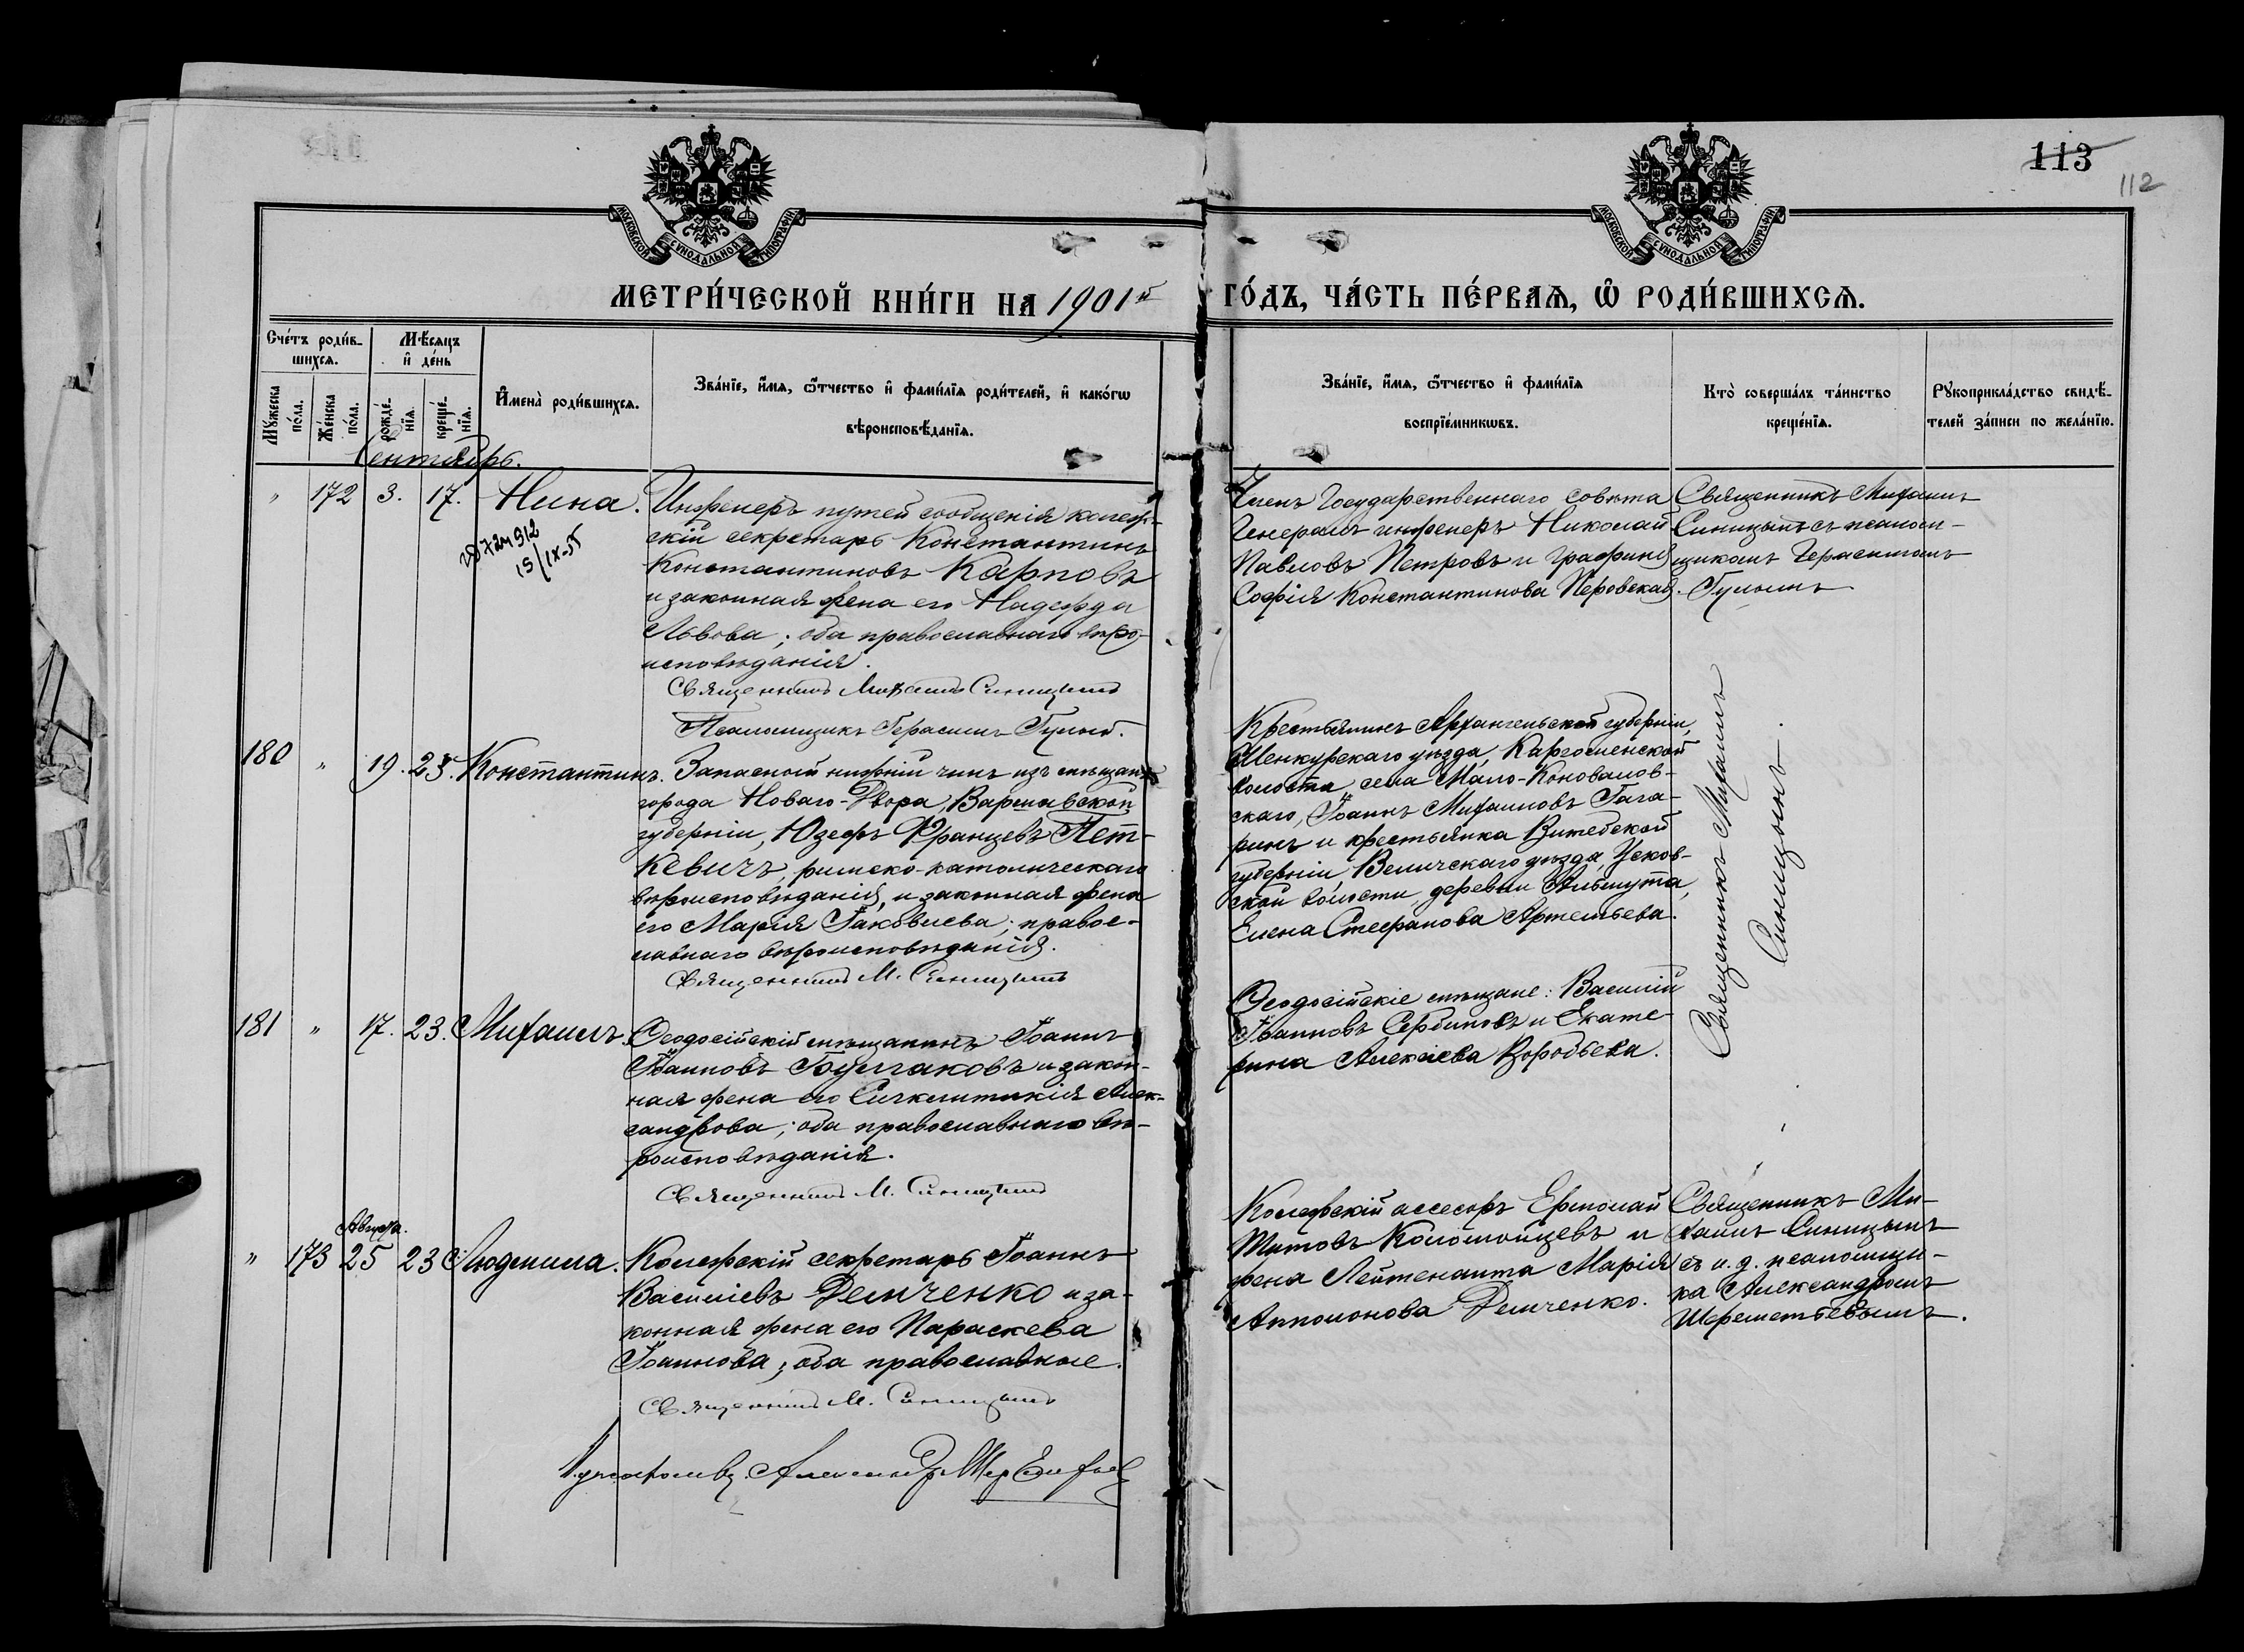 113
112
МОСКОВСКОЙ СУНОДАЛЬНОЙ ТИПОГРАФІИ
МОСКОВСКОЙ СУНОДАЛЬНОЙ ТИПОГРАФІИ
МЕТРИ́ЧЕСКОЙ КНИ́ГИ НА 1901й ГО́ДЪ, ЧА́СТЬ ПЕ́РВАѦ, Ѡ҆ РОДИ́ВШИХСѦ.
Сче́тъ роди́в-
шихсѧ.
Мꙋжеска
по́ла.
Же́нска
по́ла.
Мѣ́сѧцъ
и҆ де́нь
рожде́-
нїѧ.
креще́-
нїѧ.
И҆мена̀ роди́вшихсѧ.
Зва́нїе, и҆́мѧ, ѻ҆́тчество и҆ фами́лїѧ роди́телей, и҆ како́гѡ
вѣроисповѣ́данїѧ.
Зва́нїе, и҆́мѧ, ѻ҆́тчество и҆ фами́лїѧ
воспрїе́мникѡвъ.
Кто̀ соверша́лъ та́инство
креще́нїѧ.
Рꙋкоприкла́дство свидѣ́-
телей за́писи по жела́нїю.
Сентябрь.
" 172 3. 17. Нина.
Инженеръ путей сообщенія коллеж-
скій секретарь Константинъ
Константиновъ Карповъ
и законная жена его Надежда
Львова; оба православнаго вѣро-
исповѣданія.
Священникъ Михаилъ Синицынъ
Псаломщикъ Герасимъ
Членъ Государственнаго совѣта
Генералъ инженеръ Николай
Павловъ Петровъ и графиня
Софія Константинова Перовская.
Священникъ Михаилъ
Синицынъ съ псалом-
щикомъ Герасимомъ
180 " 19. 23. Константинъ.
Запасной нижній чинъ изъ мѣщанъ
города Новаго-Двора, Варшавской
губерніи, Юзефъ Францевъ Пет-
кевичъ, римско-католическаго
вѣроисповѣданія, и законная жена
его Марія Іаковлева; правос-
лавнаго вѣроисповѣданія.
Священникъ М. Синицынъ
Крестьянинъ Архангельской губерніи,
Шенкурскаго уѣзда,
волости, села Мало-Коновалов-
скаго, Іоаннъ Михаиловъ Гага-
ринъ и крестьянка Витебской
губерніи Велижскаго уѣзда, Усков-
ской волости, деревни
Елена Стефанова Артемьева.
Священникъ Михаилъ
Синицынъ.
181 " 17. 23. Михаилъ.
Ѳеодосійскій мѣщанинъ Іоаннъ
Іоанновъ Булгаковъ и закон-
ная жена его Синклитикія Алек-
сандрова; оба православнаго вѣ-
роисповѣданія.
Священникъ М. Синицынъ
Ѳеодосійскіе мѣщане: Василій
Іоанновъ Сербиновъ и Екате-
рина Алексіева Воробьева.
Августа.
" 173 25 23 Людмила.
Коллежскій секретарь Іоаннъ
Василіевъ Демченко и за-
конная жена его Параскева
Іоаннова; оба православные.
Священникъ М. Синицынъ
Коллежскій ассесоръ Ермолай
Титовъ Коломойцевъ и
жена Лейтенанта Марія
Аполлонова Демченко.
Священникъ Ми-
хаилъ Синицынъ
съ и. д. псаломщи-
ка Александромъ
Шереметьевымъ.